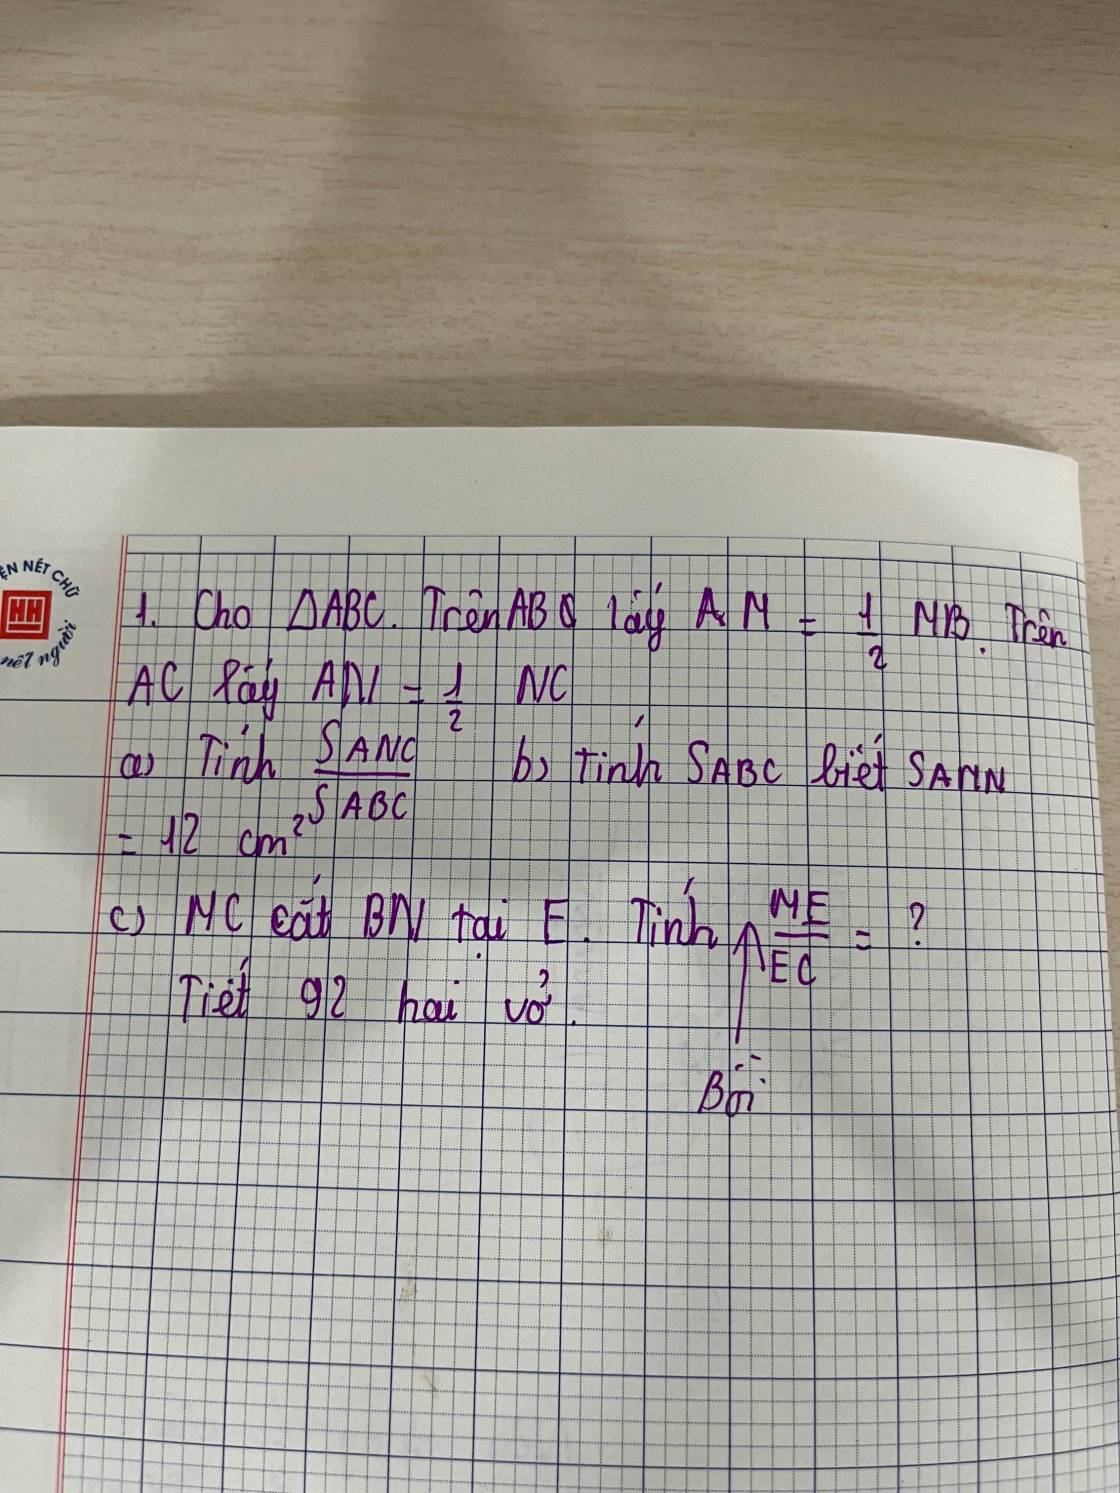 ỆN NÉT CHỮ
HH
nết người
1. Cho ΔABC. Trên AB lấy AM = 1/2 MB. Trên
AC lấy AN = 1/2 NC
a) Tính SANC/SABC b) Tính SABC biết SAMN
= 12 cm²
c) MC cắt BN tại E. Tính ME/EC = ?
Tiết 92 hai vở.
Bồi